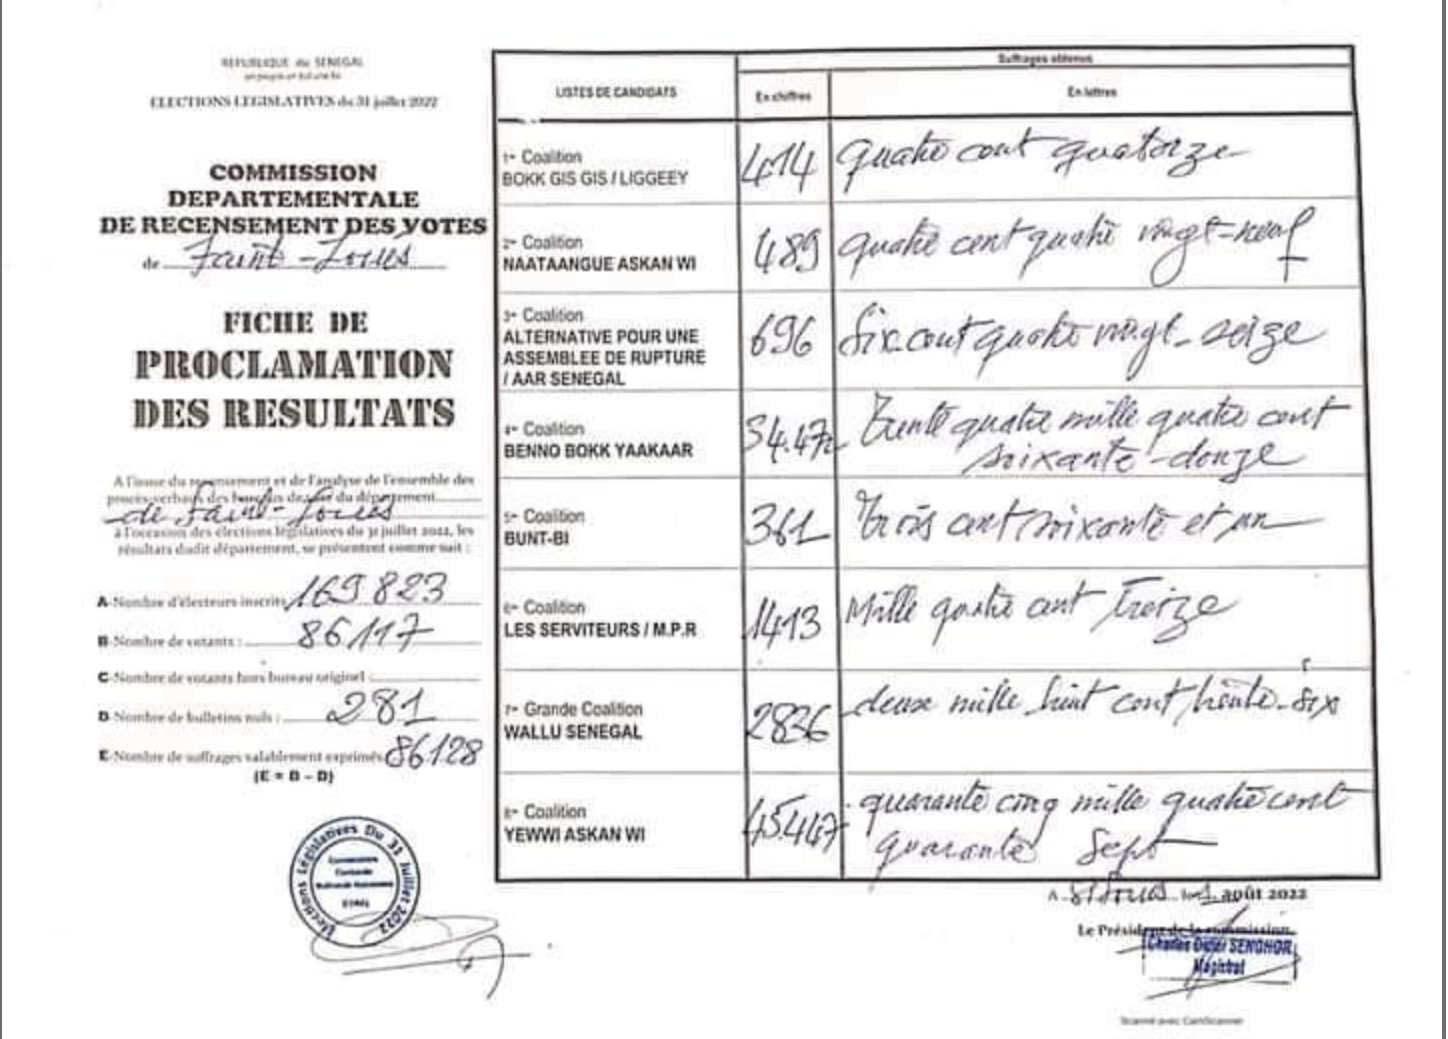 REPUBLIQUE du SENEGAL
ELECTIONS LEGISLATIVES du 31 juillet 2022
COMMISSION
DEPARTEMENTALE
DE RECENSEMENT DES VOTES
de Saint-Louis
FICHE DE
PROCLAMATION
DES RESULTATS
A l'issue du recensement et de l'analyse de l'ensemble des
procès-verbaux des bureaux de vote du département
de Saint-Louis
à l'occasion des élections législatives du 31 juillet 2022, les
résultats dudit département, se présentent comme suit :
A-Nombre d'électeurs inscrits 169 823
B-Nombre de votants : 86117
C-Nombre de votants hors bureau originel :
D-Nombre de bulletins nuls : 281
E-Nombre de suffrages valablement exprimés 86128
(E = B - D)
Elections Législatives Du 31 Juillet 2022
LISTES DE CANDIDATS
Suffrages obtenus
En chiffres
En lettres
1- Coalition
BOKK GIS GIS / LIGGEEY
414
quatre cent quatorze
2- Coalition
NAATAANGUE ASKAN WI
489
quatre cent quatre vingt-neuf
3- Coalition
ALTERNATIVE POUR UNE
ASSEMBLEE DE RUPTURE
/ AAR SENEGAL
696
Six cent quatre vingt-seize
4- Coalition
BENNO BOKK YAAKAAR
34.472
Trente quatre mille quatre cent
soixante-douze
5- Coalition
BUNT-BI
361
Trois cent soixante et un
6- Coalition
LES SERVITEURS / M.P.R
1413
Mille quatre cent Treize
7- Grande Coalition
WALLU SENEGAL
2836
deux mille huit cent trente-six
8- Coalition
YEWWI ASKAN WI
45.447
quarante cinq mille quatre cent
quarante Sept
A St Louis le 1 août 2022
Le Président de la commission
Charles Didier SENGHOR
Magistrat
Scanné avec CamScanner